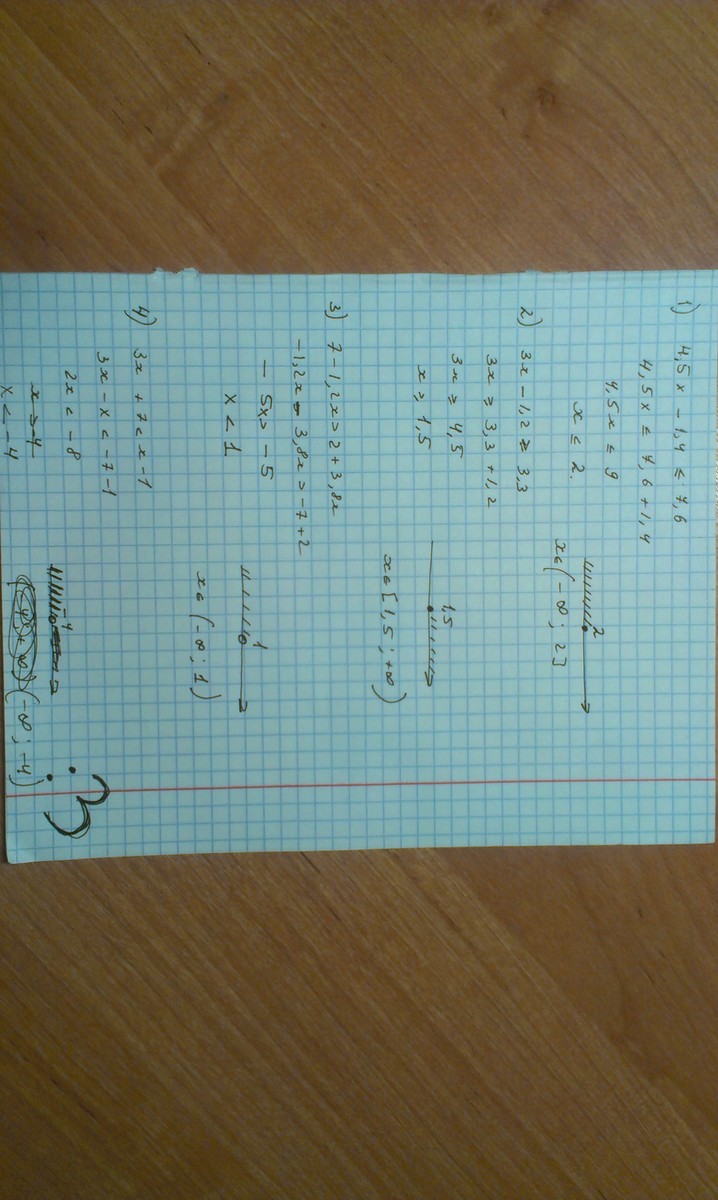 1) 4,5x - 1,4 ≤ 7,6
4,5x ≤ 7,6 + 1,4
4,5x ≤ 9
x ≤ 2.
2
x∈(-∞; 2]
2) 3x - 1,2 ≥ 3,3
3x ≥ 3,3 + 1,2
3x ≥ 4,5
x ≥ 1,5
1,5
x∈[1,5; +∞)
3) 7 - 1,2x > 2 + 3,8x
-1,2x - 3,8x > -7 + 2
- 5x > - 5
x < 1
1
x∈(-∞; 1)
4) 3x + 7 < x - 1
3x - x < -7 - 1
2x < - 8
x > -4
x < -4
-4
(-∞; -4)
:3